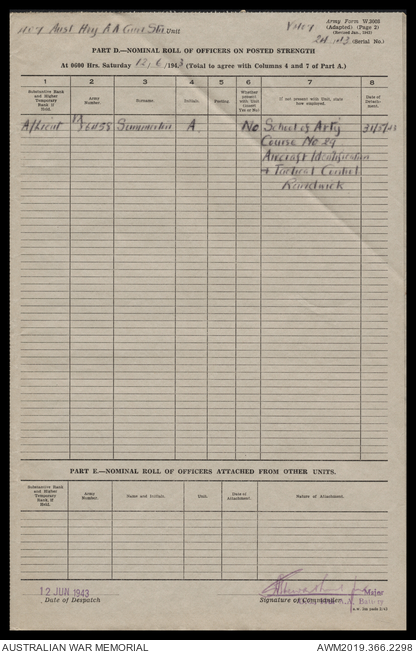 Aust Hvy A.A. Gun Stn. Unit
Army Form W.3008
(Adapted) (Page 2)
(Revised Jan., 1943)
(Serial No.)
PART D.—NOMINAL ROLL OF OFFICERS ON POSTED STRENGTH
At 0600 Hrs. Saturday 12/6/1943 (Total to agree with Columns 4 and 7 of Part A.)
1 2 3 4 5 6 7 8
Substantive Rank and Higher Temporary Rank if Held. Army Number. Surname. Initials. Posting Whether present with Unit (insert Yes or No) If not present with Unit, state how employed. Date of Detachment.
A/Lieut A. No School of Arty 31/5/43
Course No 29
Aircraft Identification
+ Tactical Control
Randwick
PART E.—NOMINAL ROLL OF OFFICERS ATTACHED FROM OTHER UNITS.
Substantive Rank and Higher Temporary Rank if Held. Army Number. Name and Initials. Unit. Date of Attachment. Nature of Attachment.
12 JUN 1943
Date of Despatch
Major
Signature of Commander
AUSTRALIAN WAR MEMORIAL AWM2019.366.2298